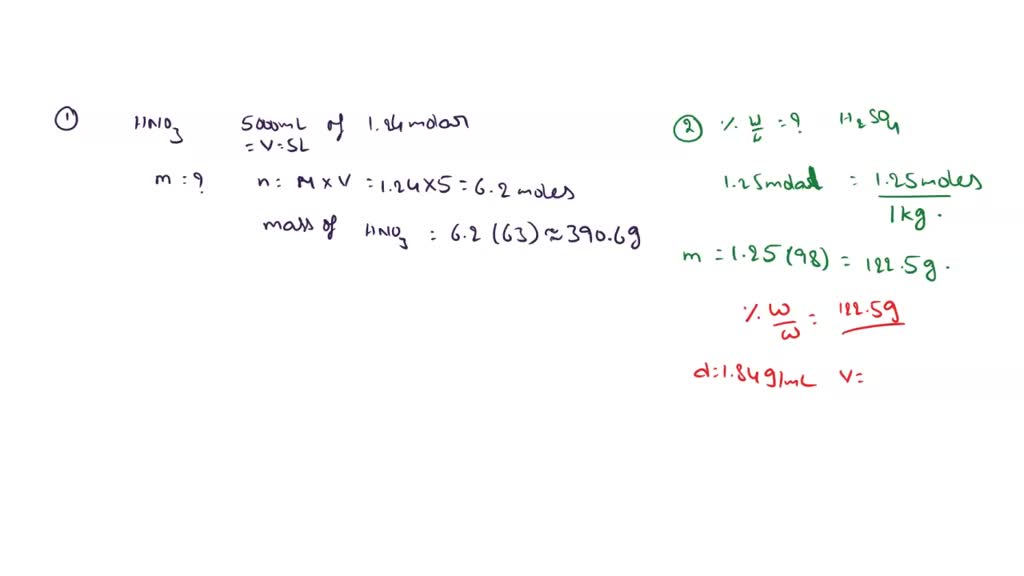 ① HNO₃ 5000mL of 1.24 molar
= V = 5L
m : ? n : M × V = 1.24 × 5 = 6.2 moles
mass of HNO₃ = 6.2 (63) ≈ 390.6g
② % w/w = ? H₂SO₄
1.25 molal = 1.25 moles / 1 kg .
m = 1.25 (98) = 122.5g .
% w/w = 122.5g
d = 1.84 g/mL V =